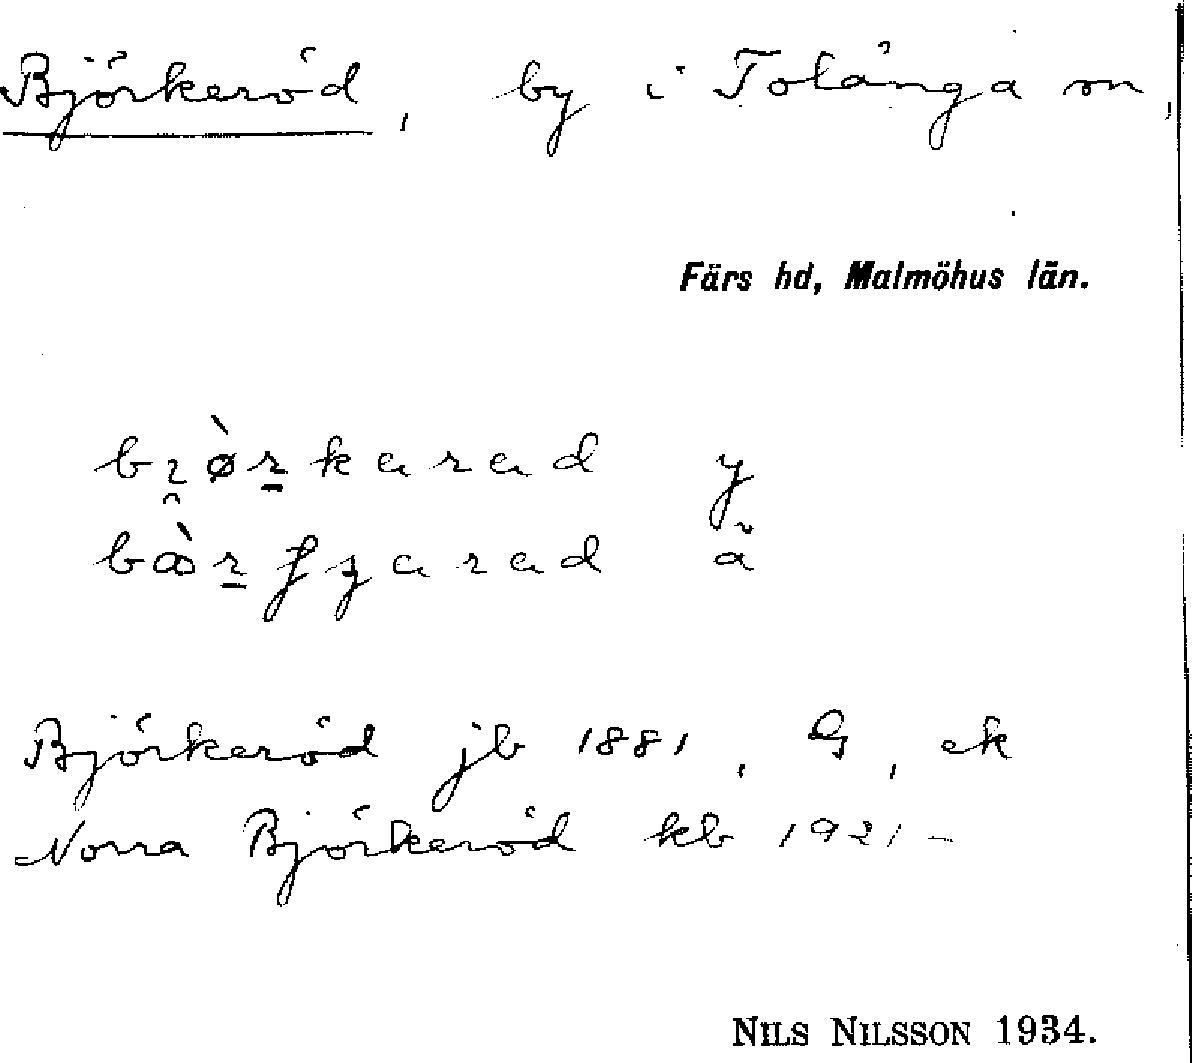 Björkeröd, by i Tolånga sn,
Färs hd, Malmöhus län.
y
ä
Björkeröd jb 1881, G, ek
Norra Björkeröd kb 1921-
NILS NILSSON 1934.